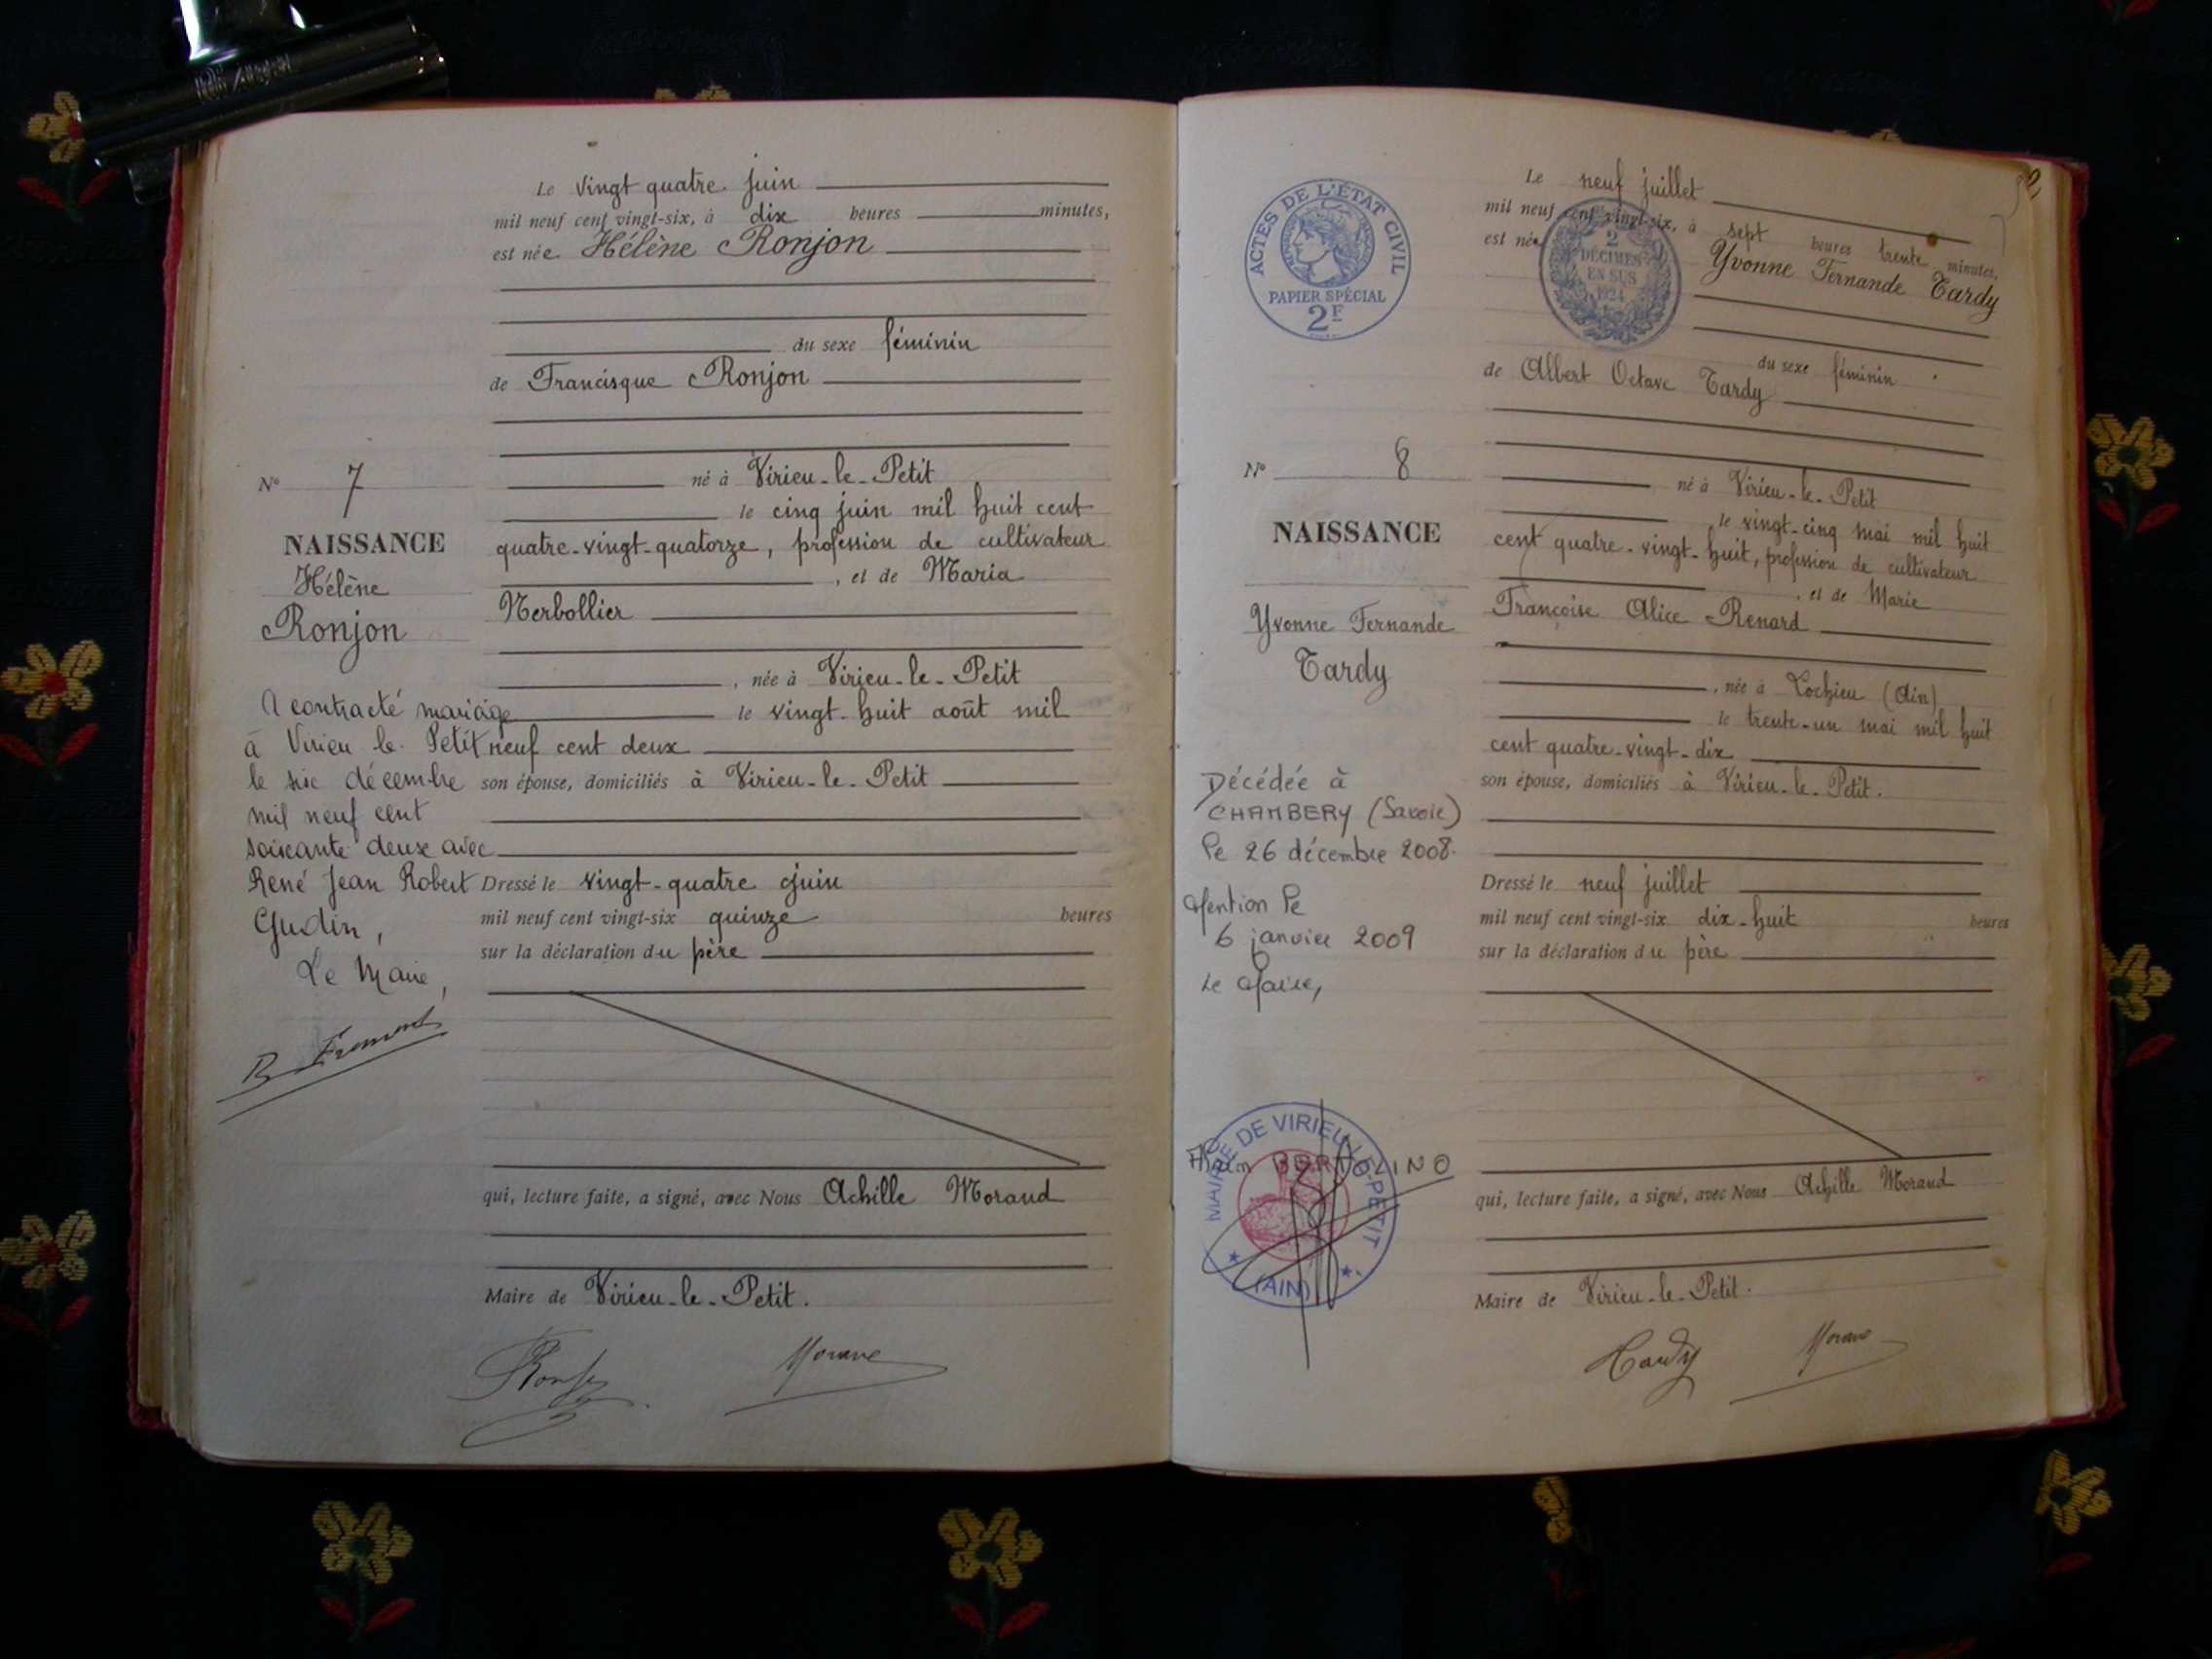 Le vingt quatre juin
mil neuf cent vingt-six, à dix heures minutes,
est née Hélène Ronjon
du sexe féminin
de Francisque Ronjon
né à Virieu-le-Petit
le cinq juin mil huit cent
quatre-vingt-quatorze, profession de cultivateur
, et de Maria
Nerbollier
, née à Virieu-le-Petit
le vingt-huit août mil
neuf cent deux
son épouse, domiciliés à Virieu-le-Petit
Dressé le vingt-quatre juin
mil neuf cent vingt-six quinze heures
sur la déclaration du père
qui, lecture faite, a signé, avec Nous Achille Morand
Maire de Virieu-le-Petit.
N° 7
NAISSANCE
Hélène
Ronjon
A contracté mariage
à Virieu le Petit
le six décembre
mil neuf cent
soixante deux avec
René Jean Robert
Gudin,
Le Maire,
ACTES DE L'ÉTAT CIVIL
PAPIER SPÉCIAL
2F
2
DÉCIMES
EN SUS
1924
Le neuf juillet
mil neuf cent vingt-six, à sept heures trente minutes,
est née Yvonne Fernande Tardy
du sexe féminin
de Albert Octave Tardy
né à Virieu-le-Petit
, le vingt-cinq mai mil huit
cent quatre-vingt-huit, profession de cultivateur
, et de Marie
Françoise Alice Renard
, née à Lochieu (Ain)
le trente-un mai mil huit
cent quatre-vingt-dix
son épouse, domiciliés à Virieu-le-Petit.
Dressé le neuf juillet
mil neuf cent vingt-six dix-huit heures
sur la déclaration du père
qui, lecture faite, a signé, avec Nous Achille Morand
Maire de Virieu-le-Petit.
Tardy
N° 8
NAISSANCE
Yvonne Fernande
Tardy
Décédée à
CHAMBERY (Savoie)
le 26 décembre 2008.
Mention le
6 janvier 2009
Le Maire,
MAIRIE DE VIRIEU-LE-PETIT
(AIN)